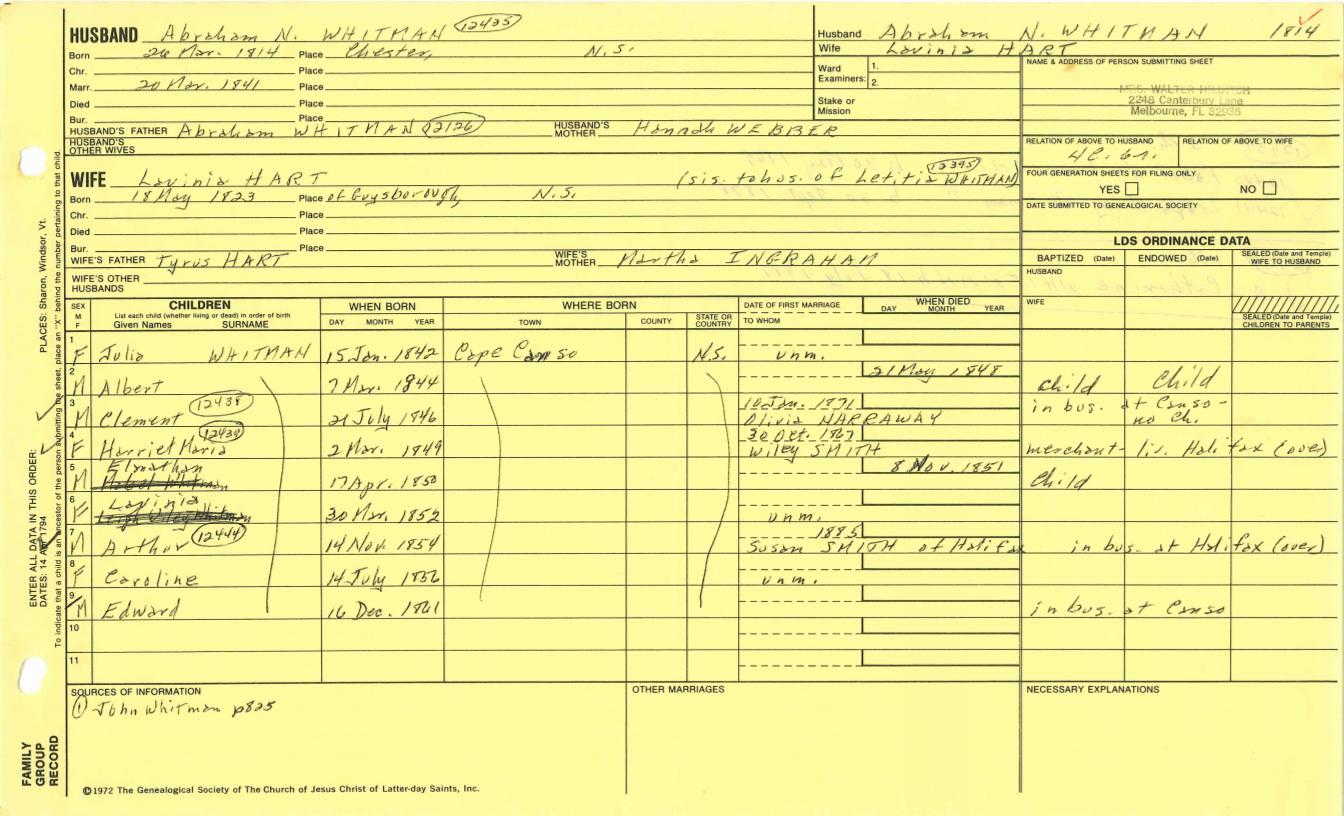 HUSBAND Abraham N. WHITMAN 12435
Born 26 Mar. 1814 Place Chester, N.S.
Chr. Place
Marr. 20 Mar. 1841 Place
Died Place
Bur. Place
HUSBAND'S FATHER Abraham WHITMAN 12126 HUSBAND'S MOTHER Hannah WEBBER
HUSBAND'S OTHER WIVES
WIFE Lavinia HART (sis. to hus. of Letitia WHITMAN) 12395
Born 18 May 1823 Place of Guysborough, N.S.
Chr. Place
Died Place
Bur. Place
WIFE'S FATHER Tyrus HART WIFE'S MOTHER Martha INGRAHAM
WIFE'S OTHER HUSBANDS
Husband Abraham N. WHITMAN 1814
Wife Lavinia HART
Ward Examiners: 1. 2.
Stake or Mission
NAME & ADDRESS OF PERSON SUBMITTING SHEET
MRS. WALTER
2248 Canterbury Lane
Melbourne, FL
RELATION OF ABOVE TO HUSBAND RELATION OF ABOVE TO WIFE
FOUR GENERATION SHEETS FOR FILING ONLY
YES NO
DATE SUBMITTED TO GENEALOGICAL SOCIETY
LDS ORDINANCE DATA
BAPTIZED (Date) ENDOWED (Date) SEALED (Date and Temple) WIFE TO HUSBAND
HUSBAND
WIFE
SEALED (Date and Temple) CHILDREN TO PARENTS
SEX M F CHILDREN WHEN BORN WHERE BORN DATE OF FIRST MARRIAGE WHEN DIED
List each child (whether living or dead) in order of birth
Given Names SURNAME DAY MONTH YEAR TOWN COUNTY STATE OR COUNTRY TO WHOM DAY MONTH YEAR
1 F Julia WHITMAN 15 Jan. 1842 Cape Canso N.S. unm.
2 M Albert 7 Mar. 1844 21 May 1848 Child Child
3 M Clement 12438 21 July 1846 10 Jan. 1871 Olivia HARRAWAY in bus. at Canso - no Ch.
4 F Harriet Maria 12439 2 Mar. 1849 30 Oct. 1867 Wiley SMITH merchant - liv. Halifax (over)
5 M Elnathan 17 Apr. 1850 8 Nov. 1851 Child
6 F Lavinia 30 Mar. 1852 unm.
7 M Arthur 12444 14 Nov. 1854 1885 Susan SMITH of Halifax in bus. at Halifax (over)
8 F Caroline 14 July 1856 unm.
9 M Edward 16 Dec. 1861 in bus. at Canso
10
11
SOURCES OF INFORMATION OTHER MARRIAGES NECESSARY EXPLANATIONS
① John Whitman p825
©1972 The Genealogical Society of The Church of Jesus Christ of Latter-day Saints, Inc.
FAMILY GROUP RECORD
ENTER ALL DATA IN THIS ORDER:
DATES: 14 Apr 1794
PLACES: Sharon, Windsor, Vt.
To indicate that a child is an ancestor of the person submitting the sheet, place an "X" behind the number pertaining to that child.